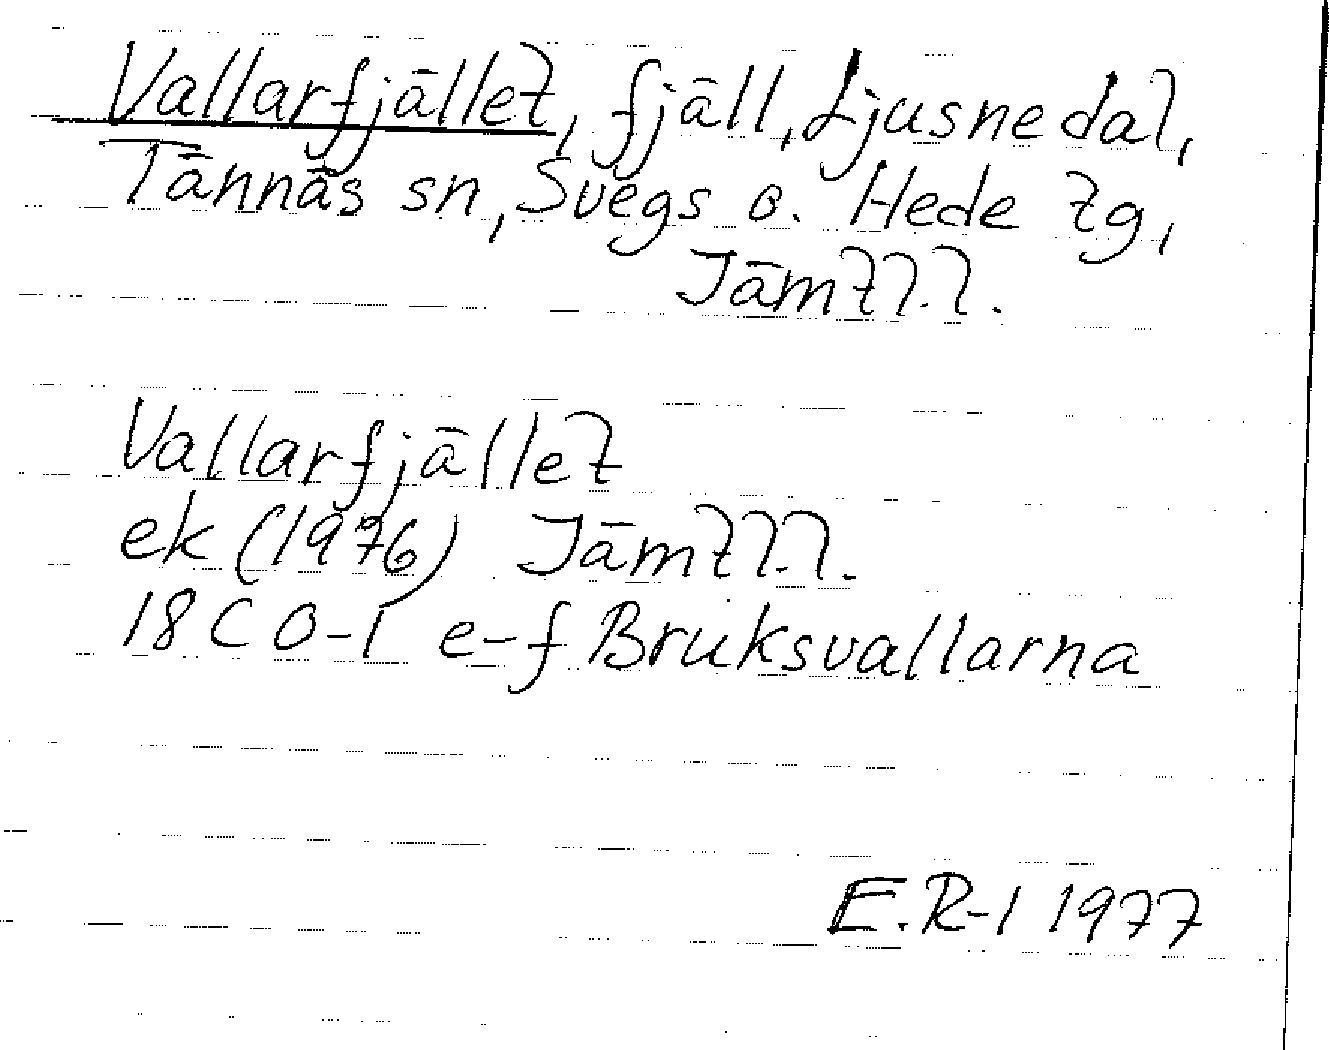 Vallarfjället, fjäll, Ljusnedal,
Tännäs sn, Svegs o. Hede tg,
Jämtl.l.
Vallarfjället
ek (1976) Jämtl.l.
18C 0-1 e-f Bruksvallarna
E.R-l 1977